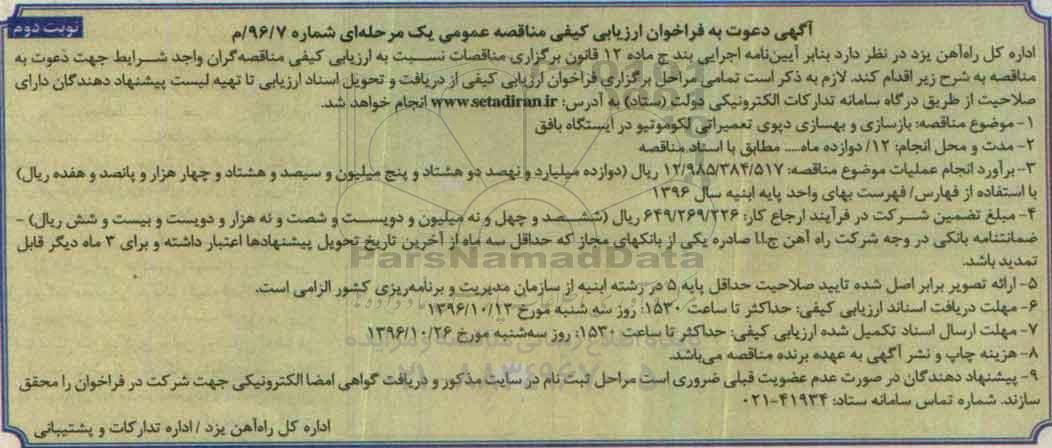 نوبت دوم
آگهی دعوت به فراخوان ارزیابی کیفی مناقصه عمومی یک مرحله‌ای شماره ۹۶/۷/م
اداره کل راه‌آهن یزد در نظر دارد بنابر آیین‌نامه اجرایی بند ج ماده ۱۲ قانون برگزاری مناقصات نسبت به ارزیابی کیفی مناقصه‌گران واجد شرایط جهت دعوت به
مناقصه به شرح زیر اقدام کند. لازم به ذکر است تمامی مراحل برگزاری فراخوان ارزیابی کیفی از دریافت و تحویل اسناد ارزیابی تا تهیه لیست پیشنهاد دهندگان دارای
صلاحیت از طریق درگاه سامانه تدارکات الکترونیکی دولت (ستاد) به آدرس: www.setadiran.ir انجام خواهد شد.
۱- موضوع مناقصه: بازسازی و بهسازی دپوی تعمیراتی لکوموتیو در ایستگاه بافق
۲- مدت و محل انجام: ۱۲/ دوازده ماه.... مطابق با اسناد مناقصه
۳- برآورد انجام عملیات موضوع مناقصه: ۱۲/۹۸۵/۳۸۴/۵۱۷ ریال (دوازده میلیارد و نهصد دو هشتاد و پنج میلیون و سیصد و هشتاد و چهار هزار و پانصد و هفده ریال)
با استفاده از فهارس/ فهرست بهای واحد پایه ابنیه سال ۱۳۹۶
۴- مبلغ تضمین شرکت در فرآیند ارجاع کار: ۶۴۹/۲۶۹/۲۲۶ ریال (ششصد و چهل و نه میلیون و دویست و شصت و نه هزار و دویست و بیست و شش ریال) -
ضمانتنامه بانکی در وجه شرکت راه آهن ج.ا.ا صادره یکی از بانکهای مجاز که حداقل سه ماه از آخرین تاریخ تحویل پیشنهادها اعتبار داشته و برای ۳ ماه دیگر قابل
تمدید باشد.
ParsNamadData
۵- ارائه تصویر برابر اصل شده تایید صلاحیت حداقل پایه ۵ در رشته ابنیه از سازمان مدیریت و برنامه‌ریزی کشور الزامی است.
۶- مهلت دریافت اسناند ارزیابی کیفی: حداکثر تا ساعت ۱۵۳۰: روز سه شنبه مورخ ۱۳۹۶/۱۰/۱۲
۷- مهلت ارسال اسناد تکمیل شده ارزیابی کیفی: حداکثر تا ساعت ۱۵۳۰: روز سه‌شنبه مورخ ۱۳۹۶/۱۰/۲۶
۸- هزینه چاپ و نشر آگهی به عهده برنده مناقصه می‌باشد.
۹- پیشنهاد دهندگان در صورت عدم عضویت قبلی ضروری است مراحل ثبت نام در سایت مذکور و دریافت گواهی امضا الکترونیکی جهت شرکت در فراخوان را محقق
سازند. شماره تماس سامانه ستاد: ۴۱۹۳۴-۰۲۱
اداره کل راه‌آهن یزد / اداره تدارکات و پشتیبانی